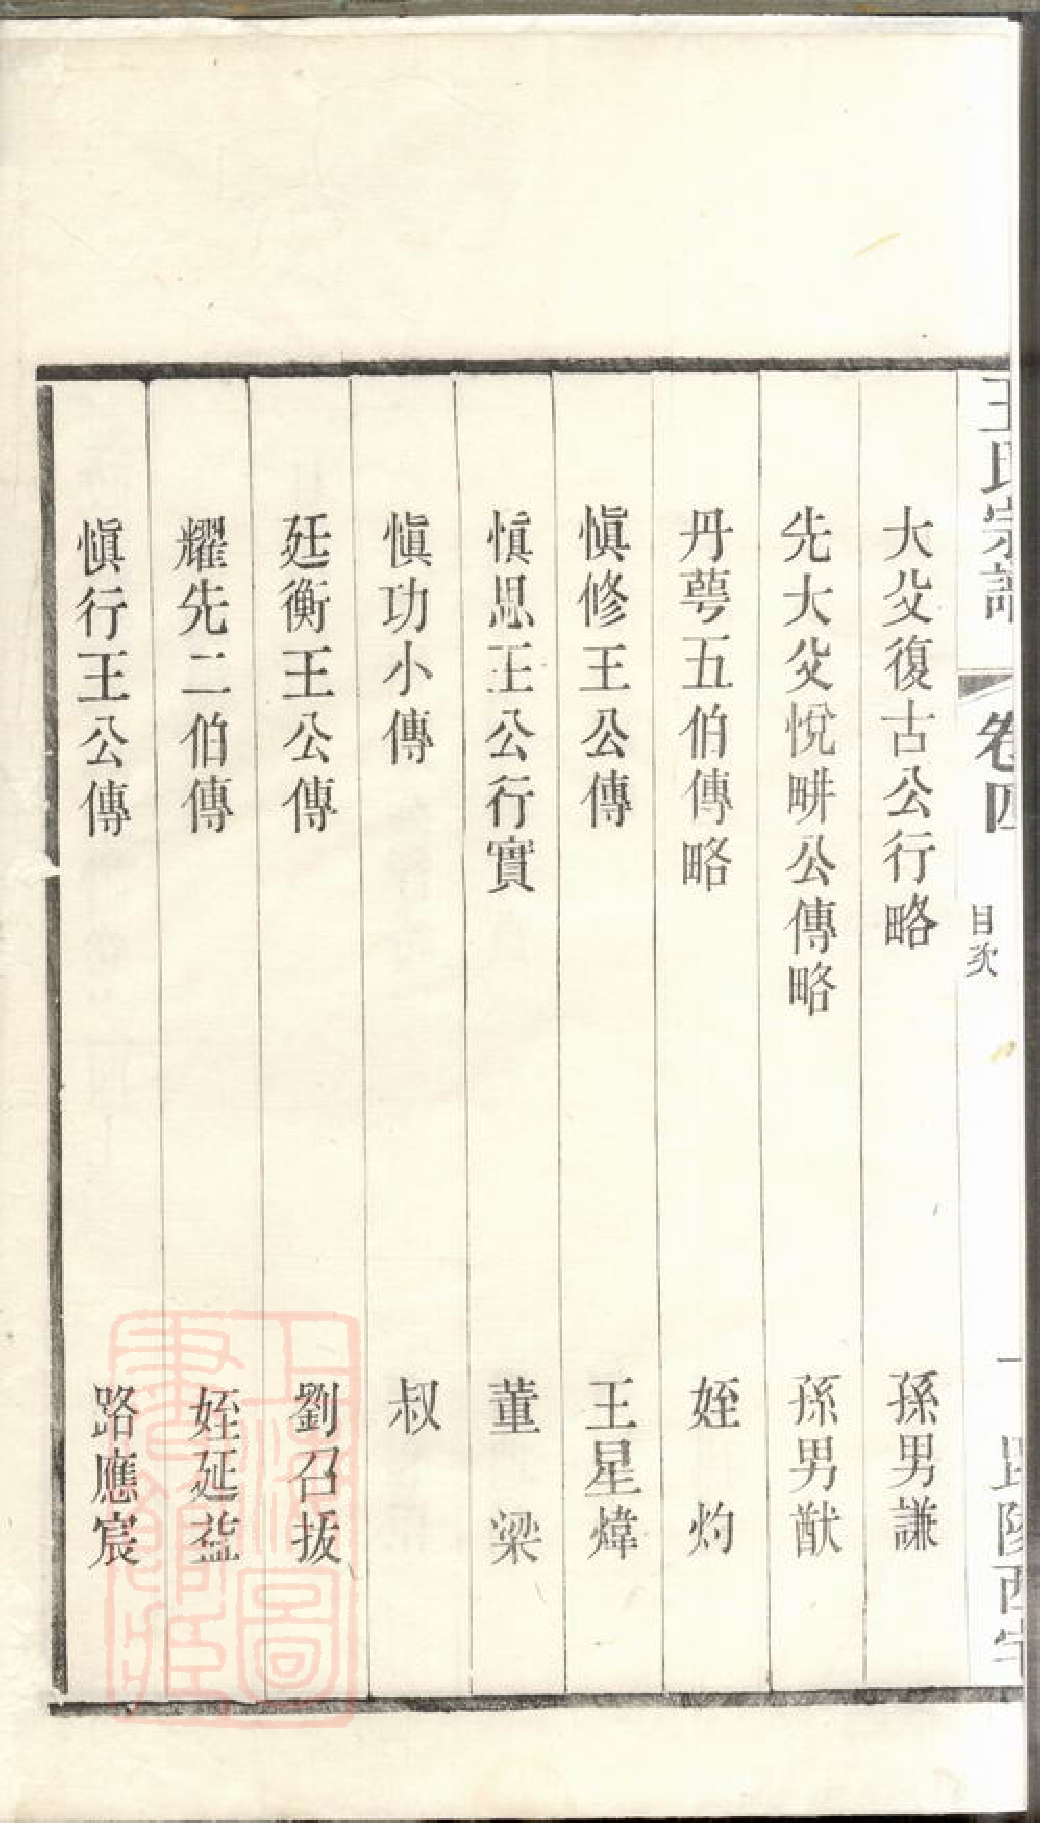 王氏宗譜 卷四 目次 一
大父復古公行略 孫男謙
先大父悅畊公傳略 孫男猷
丹萼五伯傳略 姪 灼
愼修王公傳 王星煒
愼思王公行實 董 梁
愼功小傳 叔
廷衡王公傳 劉召拔
耀先二伯傳 姪延益
愼行王公傳 路應宸
上海圖書館藏